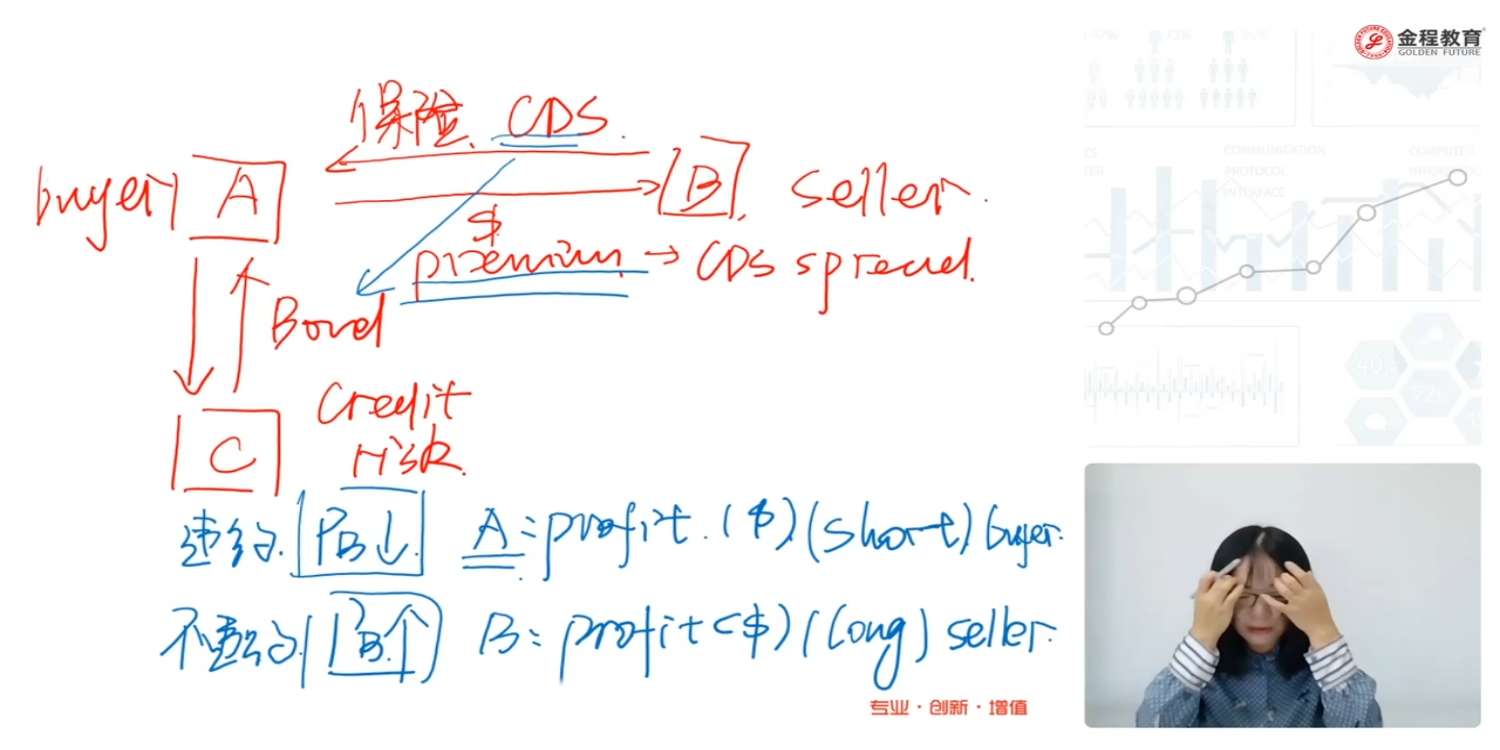 金程教育
GOLDEN FUTURE
保险 CDS.
buyer A
B. seller.
$
premium. → CDS spread.
Bond
C
Credit risk.
违约. PB↓ A: profit. ($) (short) buyer.
不违约 PB↑ B: profit ($) (long) seller.
专业·创新·增值
COMMUNICATION
PROTOCOL
INTERFACE